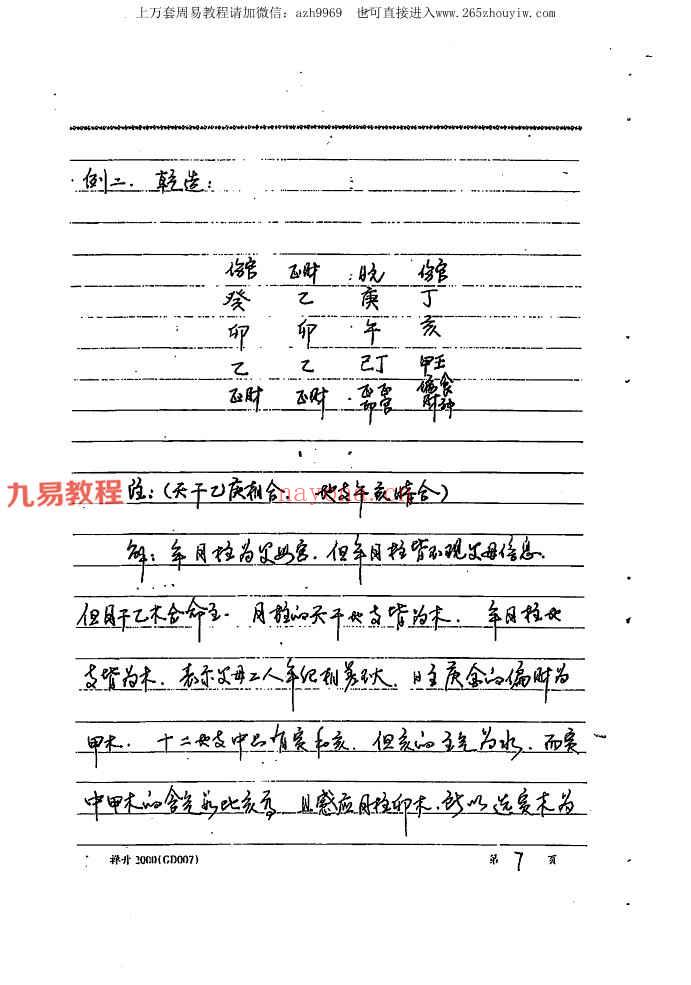 上万套周易教程请加微信：azh9969 也可直接进入www.265zhouyiw.com
例二．乾造：
伤官 正财 ：日元 伤官
癸 乙 庚 丁
卯 卯 午 亥
乙 乙 己丁 甲壬
正财 正财 ·正印 正官 偏财 食神
九易教程
注：（天干乙庚相合 地支午亥暗合）
解：年月柱为父母宫．但年月柱皆不现父母信息．
但月干乙木合命主．月柱的天干地支皆为木．年月柱地
支皆为木．表示父母二人年纪相差不大．日主庚金的偏财为
甲木．十二地支中只有寅和亥．但亥的主气为水．而寅
中甲木的含气量比亥高，且感应月柱卯木．所以选寅木为
2000(GD007)
第 7 页